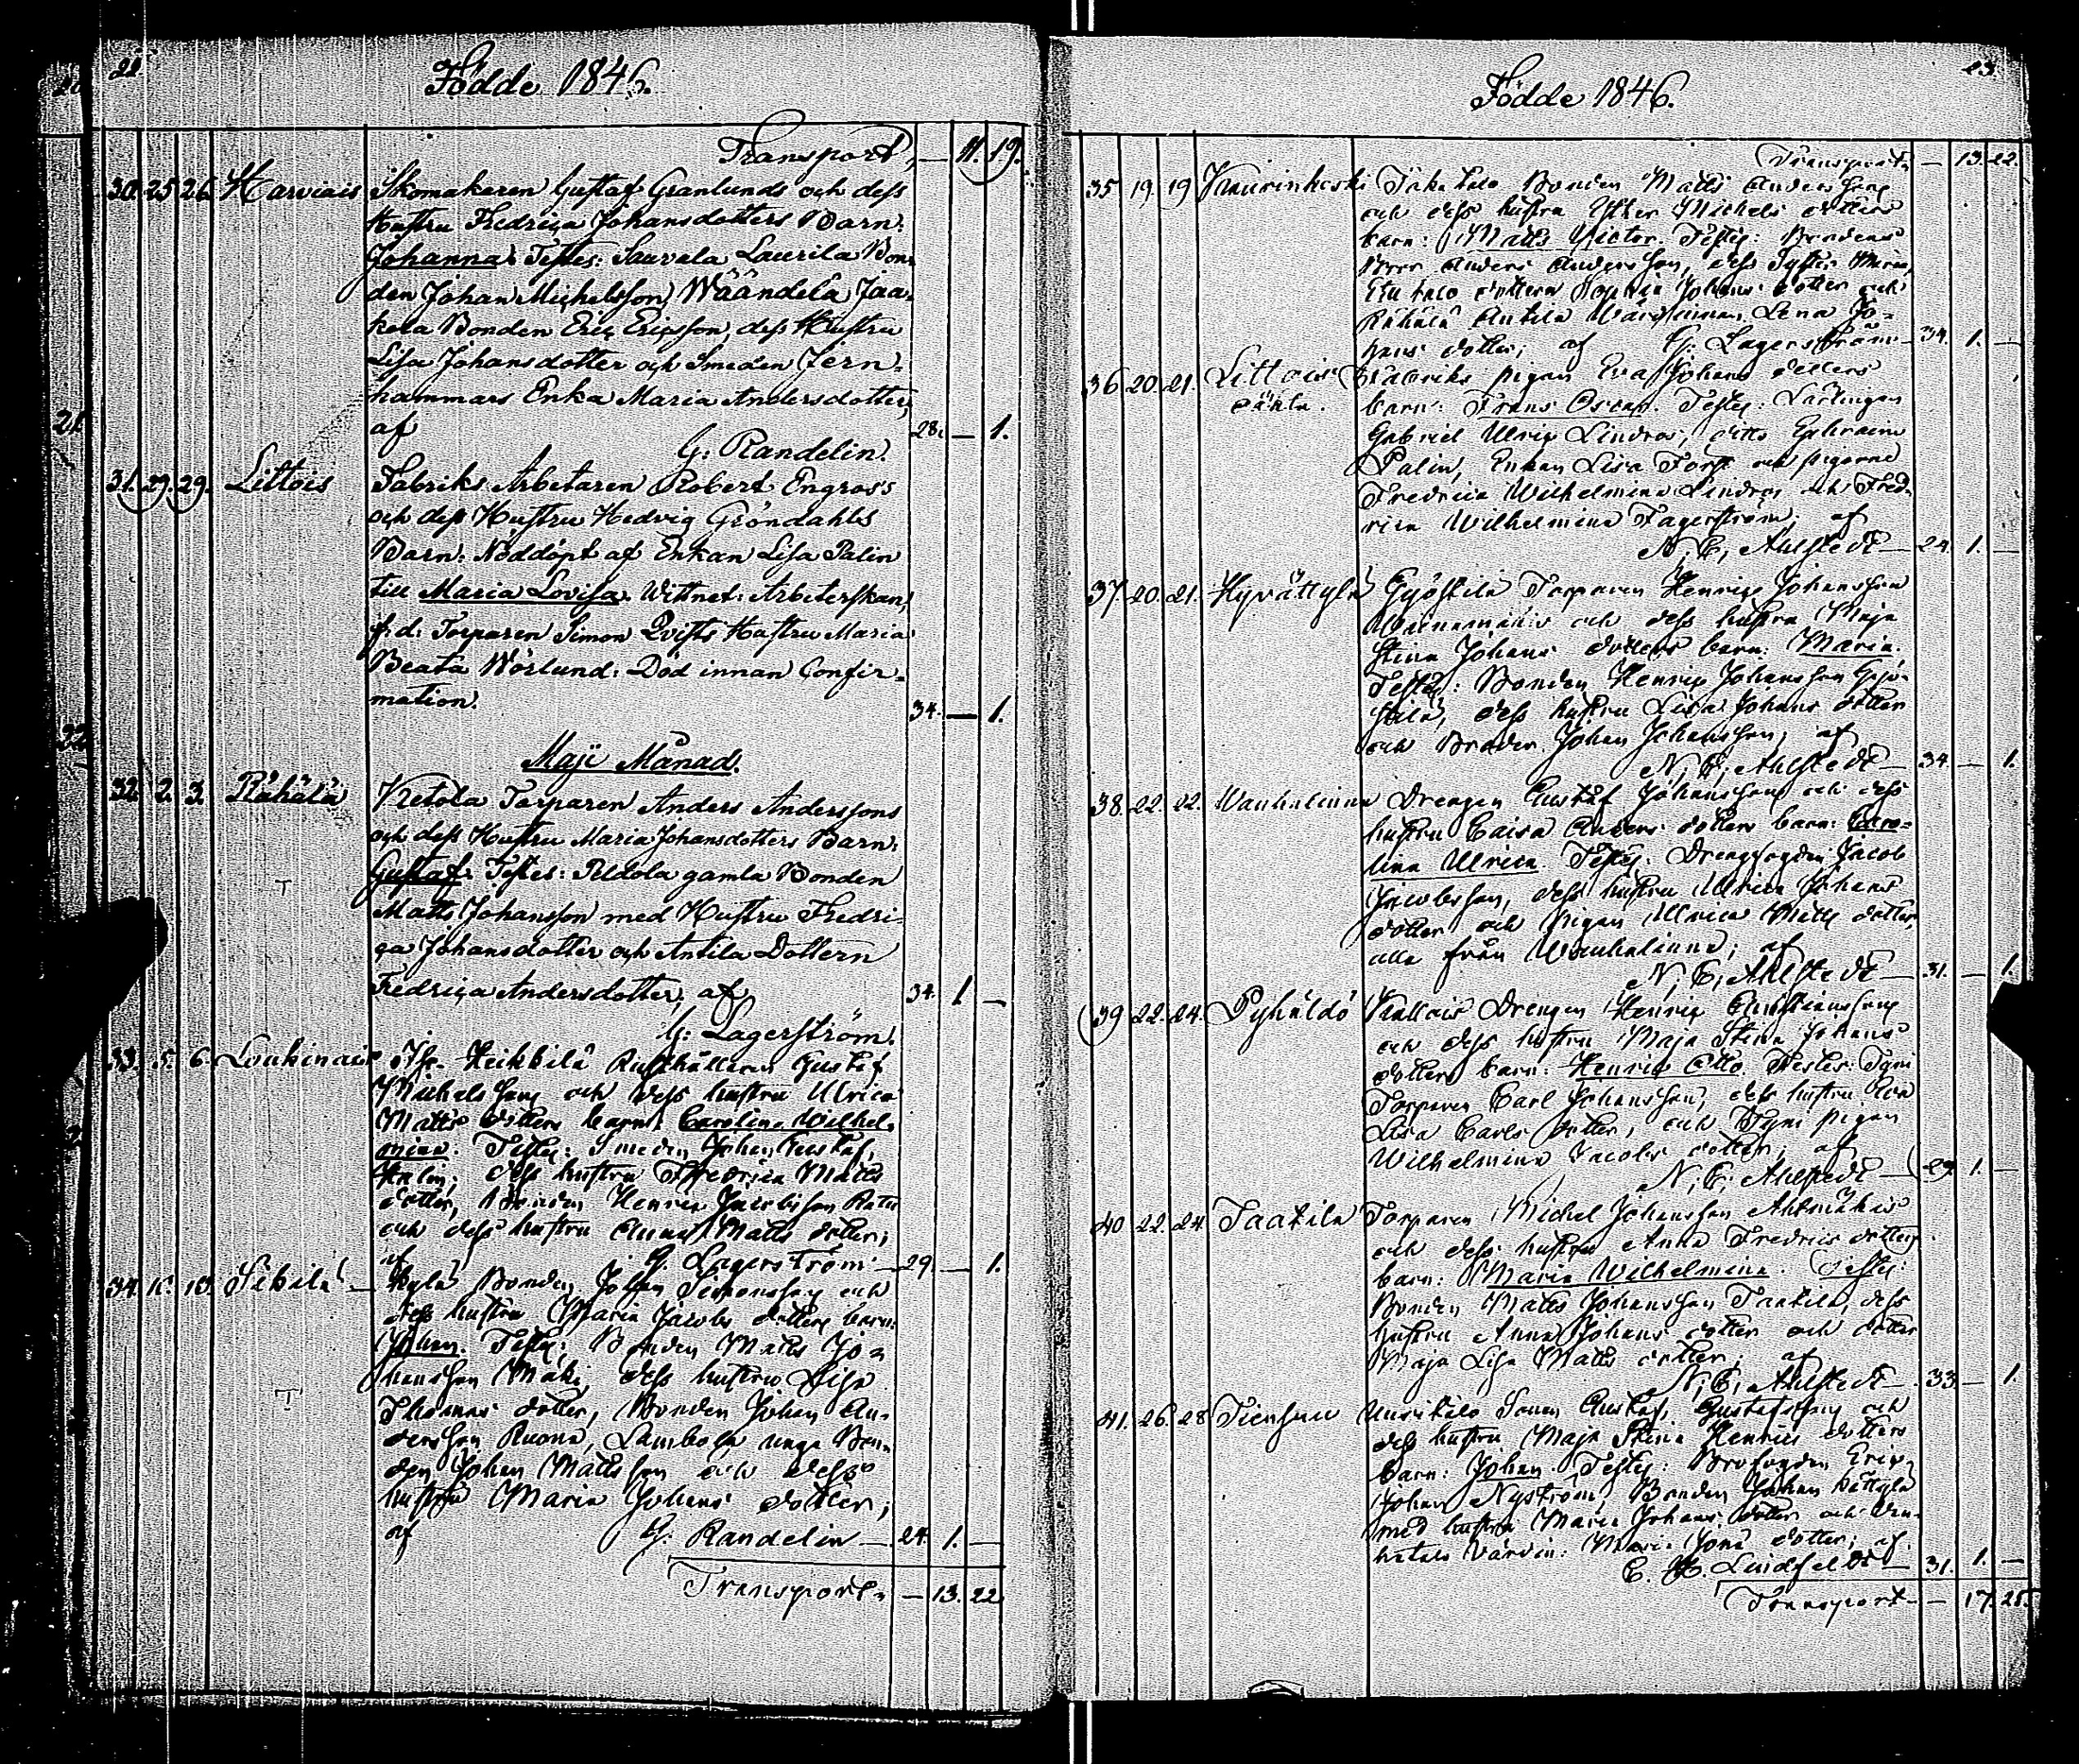 22.
Födde 1846.
Transport, — 11. 19.
30. 25 26 Harviais Skomakaren Gustaf Granlunds och dess
Hustru Fredrica Johansdotters Barn:
Johanna. Testes: Sauvala Laurila Bon-
den Johan Michelsson, Wäändelä Jaa-
kola Bonden Eric Ericsson, dess Hustru
Lisa Johansdotter och Smeden Jern-
hammars Enka Maria Andersdotter,
af 28. — 1.
G: Randelin.
31. 29. 29. Littois Fabriks Arbetaren Robert Engross
och dess Hustru Hedvig Gröndahls
Barn: Nöddöpt af Enkan Lisa Palin
till Maria Lovisa. Wittnet: Arbeterskan,
f. d. Torparen Simon Qvists Hustru Maria
Beata Wörlund: Död innan Confir-
mation. 34. — 1.
Maji Månad.
32. 2. 3. Rähälä Ketola Torparen Anders Anderssons
och dess Hustru Maria Johansdotters Barn:
Gustaf. Testes: Peldola gamla Bonden
Matts Johansson med Hustru Fredri-
ca Johansdotter och Antila Dottern
Fredrica Andersdotter; af 34. 1 —
G: Lagerström.
33. 5. 6. Loukinais Heikkilä Rusthållaren Gustaf
Michelssons och dess hustru Ulrica
Matts dotters barn: Carolina Wilhel-
mina. Testes: Smeden Johan Gustaf
dess hustru Fredrica Matts
dotter, Bonden Henric Jacobsson
och dess hustru Anna Matts dotter;
af G. Lagerström — 29. — 1.
34. 10. Sikilä — Kylä Bonden Johan Simonsson och
dess hustru Maria Jacobs dotters barn:
Johan. Testes: Bonden Matts Jo-
hansson Mäki, dess hustru Lisa
Thomas dotter, Bonden Johan An-
dersson Ruona, Lambola unga Bon-
den Johan Mattsson och dess
hustru Maria Johans dotter;
af G. Randelin — 24. 1. —
Transport. — 13. 22
23.
Födde 1846.
Transport. — 13. 22.
35 19. 19 Kaurinkoski Bonden Matts Anderssons
och dess hustru Esther Michels dotters
barn: Matts Victor. Testes: Bondens
Bror Anders Andersson, dess Syster Maria,
dottern Johans dotter och
Rähälä Antila Värdinnan Lena Jo-
hans dotter; af G. Lagerström — 34. 1. —
36 20. 21. Littois Fabriks pigan Eva Johans dotters
barn: Frans Oscar. Testes: Lärlingen
Gabriel Ulric Lindros, ditto Ephraim
Palin, Enkan Lisa Fors och pigorna
Fredrica Wilhelmina Lindros och Fred-
rica Wilhelmina Fagerström; af
N. E. Ahlstedt — 24. 1. —
37 20. 21. Hyvättylä Gyöstilä Torparen Henric Johansson
och dess hustru Maja
Stina Johans dotters barn: Maria.
Testes: Bonden Henric Johansson Gyö-
stilä, dess hustru Lisa Johans dotter
och Brodern Johan Johansson; af
N. E. Ahlstedt — 34. — 1.
38. 22. 22. Vanhalinna Drengen Gustaf Johanssons och dess
hustru Caisa Anders dotters barn: Caro-
lina Ulrica. Testes: Drengfogden Jacob
Jacobsson, dess hustru Ulrica Johans
dotter och Pigan Ulrica Matts dotter,
alla från Wanhalinna; af
N. E. Ahlstedt — 31. — 1.
39 22. 24. Pyhältö Drengen Henric Christianssons
och dess hustru Maja Stina Johans
dotters barn: Henric Otto. Testes:
Torparen Carl Johansson, dess hustru Eva
Lisa Carls dotter, och pigan
Wilhelmina Jacobs dotter; af
N. E. Ahlstedt — 29. 1. —
40 22. 24 Taatila Torparen Michel Johansson
och dess hustru Anna Fredrics dotters
barn: Maria Wilhelmina. Testes:
Bonden Matts Johansson Taatila, dess
hustru Anna Johans dotter och dotter
Maja Lisa Matts dotter; af
N. E. Ahlstedt — 33. — 1.
41. 26. 28 Tiensuu Uusitalo Sonen Gustaf Gustafssons och
dess hustru Maja Stina Henrics dotters
barn: Johan. Testes: Brofogden Eric
Johan Nyström, Bonden Johan
med hustru Maria Johans dotter och
Värdin: Maria dotter; af
Lindfeldt — 31. 1. —
Transport — — 17. 25.